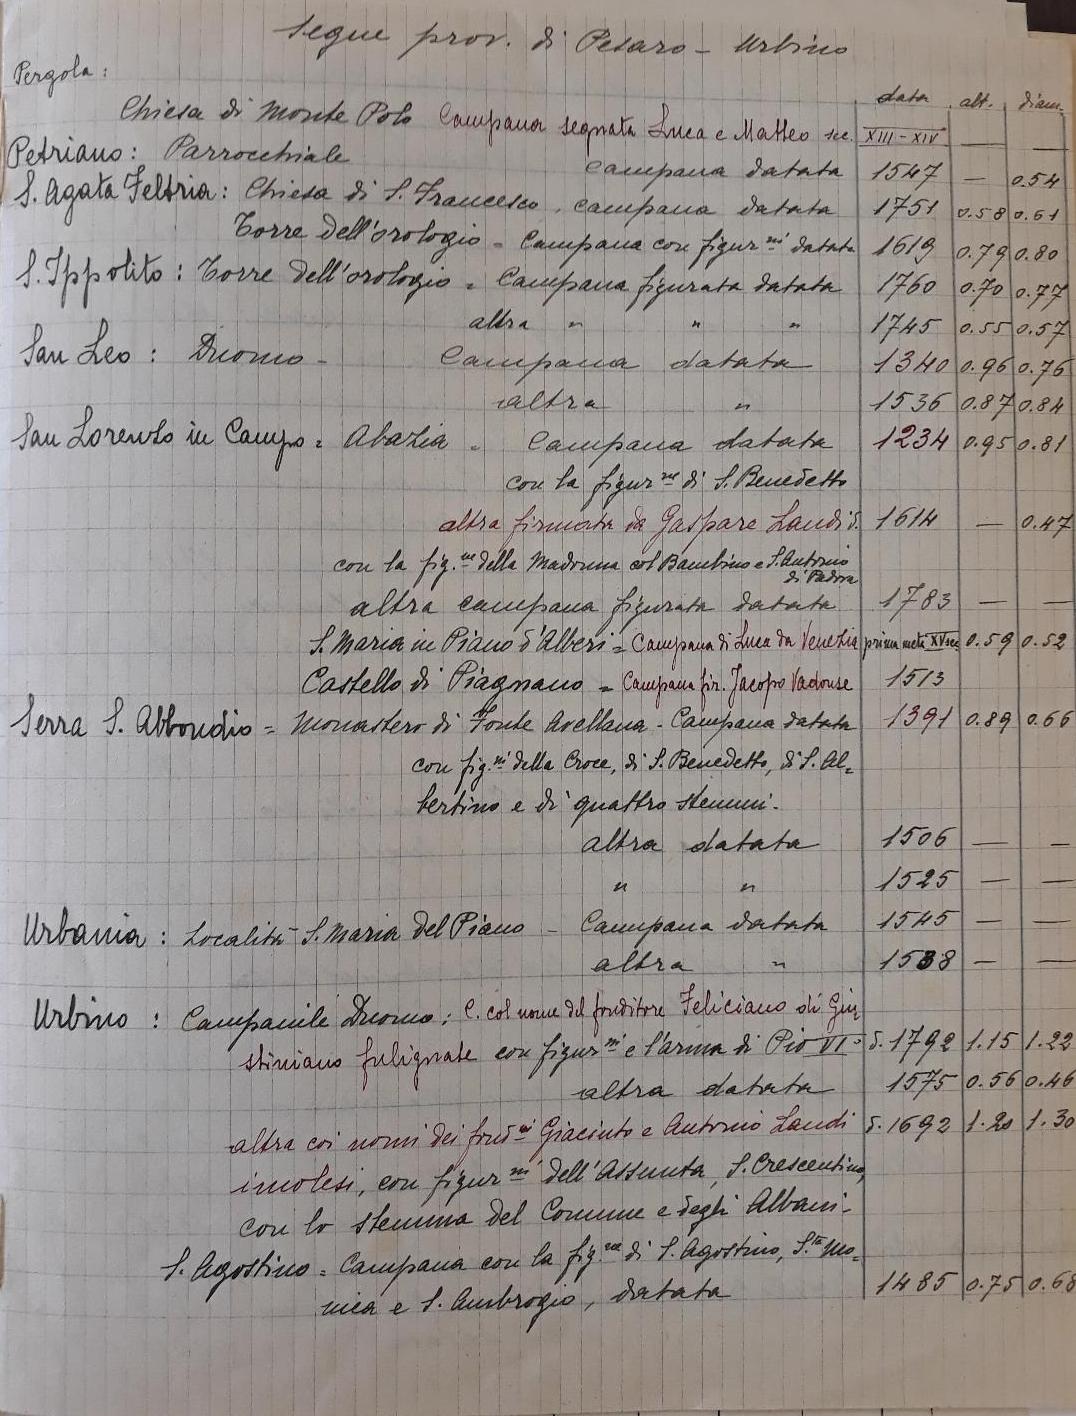 Segue prov. di Pesaro - Urbino
Pergola:
data alt. diam.
Chiesa di Monte Polo Campana segnata Luca e Matteo sec. XIII-XIV — —
Petriano: Parrocchiale campana datata 1547 — 0.54
S. Agata Feltria: Chiesa di S. Francesco, campana datata 1751 0.58 0.61
Torre dell'orologio = Campana con figur.ni datata 1619 0.79 0.80
S. Ippolito: Torre dell'orologio = Campana figurata datata 1760 0.70 0.77
altra " " " 1745 0.55 0.57
San Leo: Duomo - Campana datata 1340 0.96 0.76
altra " 1536 0.87 0.84
San Lorenzo in Campo = Abazia = Campana datata 1234 0.95 0.81
con la figur.ne di S. Benedetto
altra firmata da Gaspare Landi d. 1614 — 0.47
con la fig.ne della Madonna col Bambino e S. Antonio
di Padova
altra campana figurata datata 1783 — —
S. Maria in Piano d'Alberi = Campana di Luca da Venezia prima metà XV sec. 0.59 0.52
Castello di Piagnano = Campana fir. Jacopo Vadonse 1513
Serra S. Abbondio = Monastero di Fonte Avellana - Campana datata 1391 0.89 0.66
con fig.ni della Croce, di S. Benedetto, di S. Al=
bertino e di quattro stemmi.
altra datata 1506 — —
" " 1525 — —
Urbania: Località S. Maria del Piano - Campana datata 1545 — —
altra " 1538 — —
Urbino: Campanile Duomo; C. col nome del fonditore Feliciano di Giu
stiniano fulignate con figur.ni e l'arma di Pio VI- d. 1792 1.15 1.22
altra datata 1575 0.56 0.46
altra coi nomi dei fond.ri Giacinto e Antonio Landi d. 1692 1.20 1.30
imolesi, con figur.ni dell'Assunta, S. Crescentino,
con lo stemma del Comune e degli Albani.
S. Agostino = Campana con la fig.ne di S. Agostino, S.ta Mo=
nica e S. Ambrogio, datata 1485 0.75 0.68